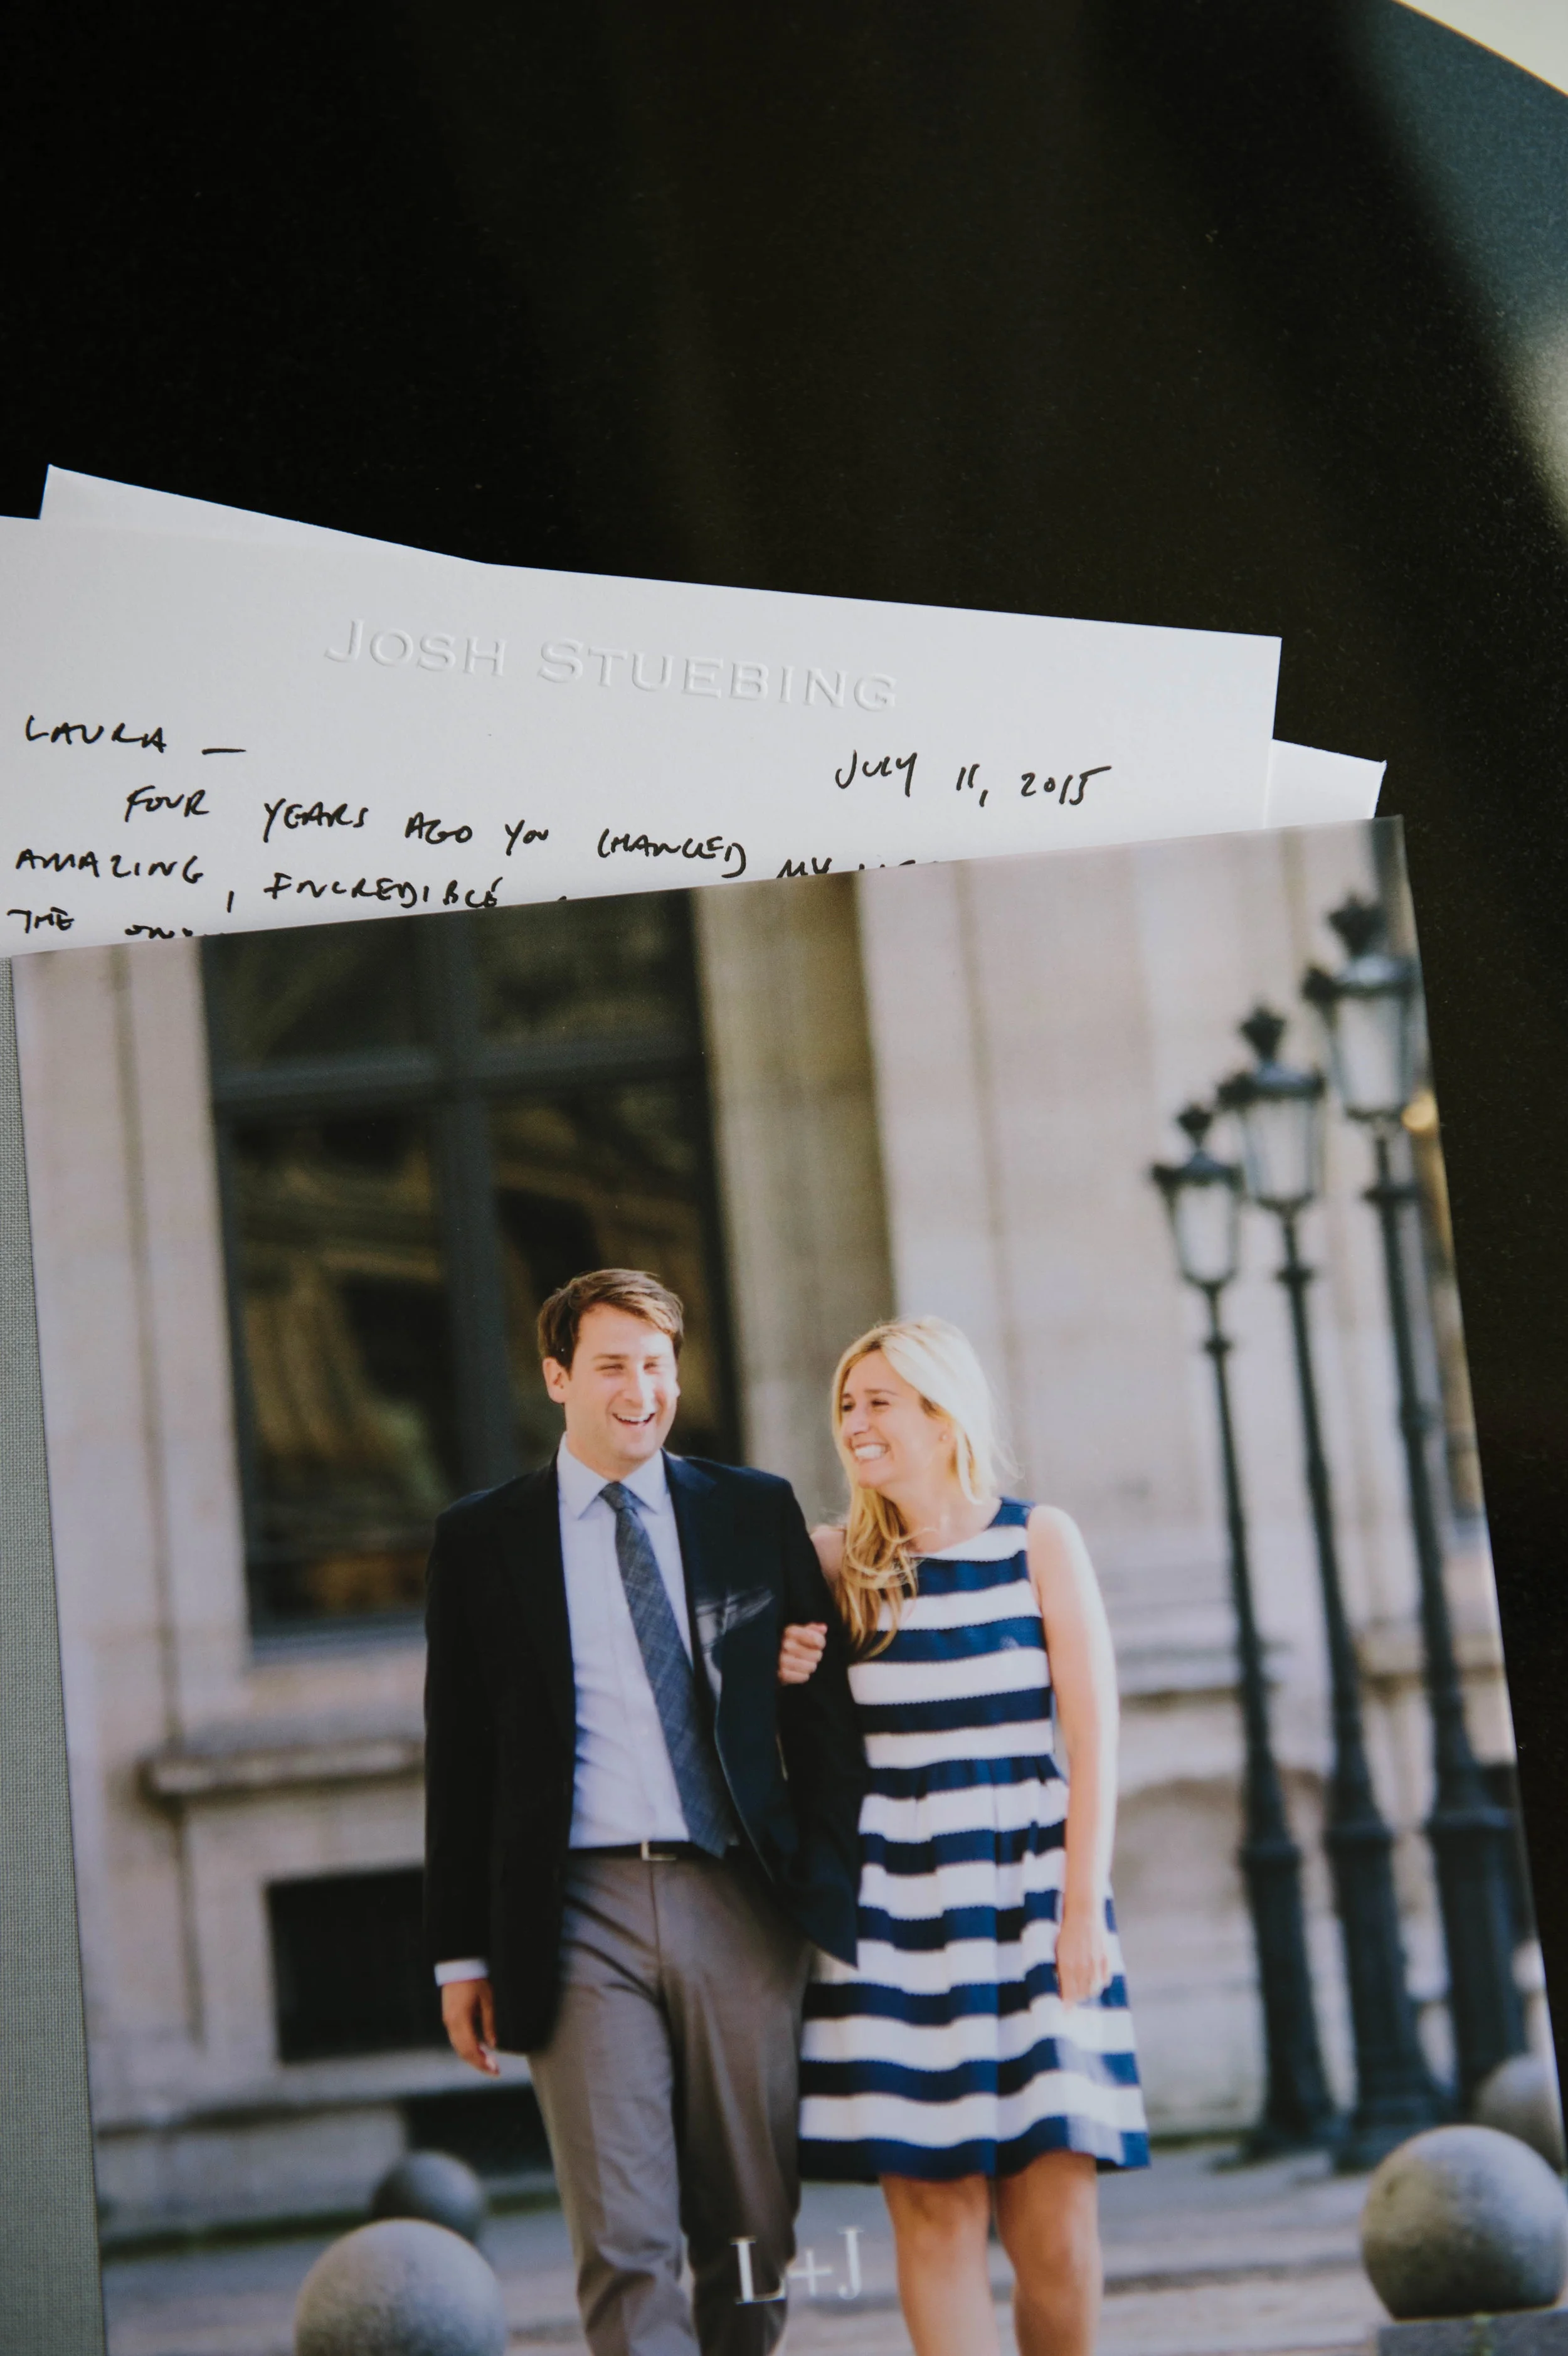 JOSH STUEBING
LAURA —
JULY 11, 2015
FOUR YEARS AGO YOU CHANGED MY
AMAZING, INCREDIBLE
THE
L+J